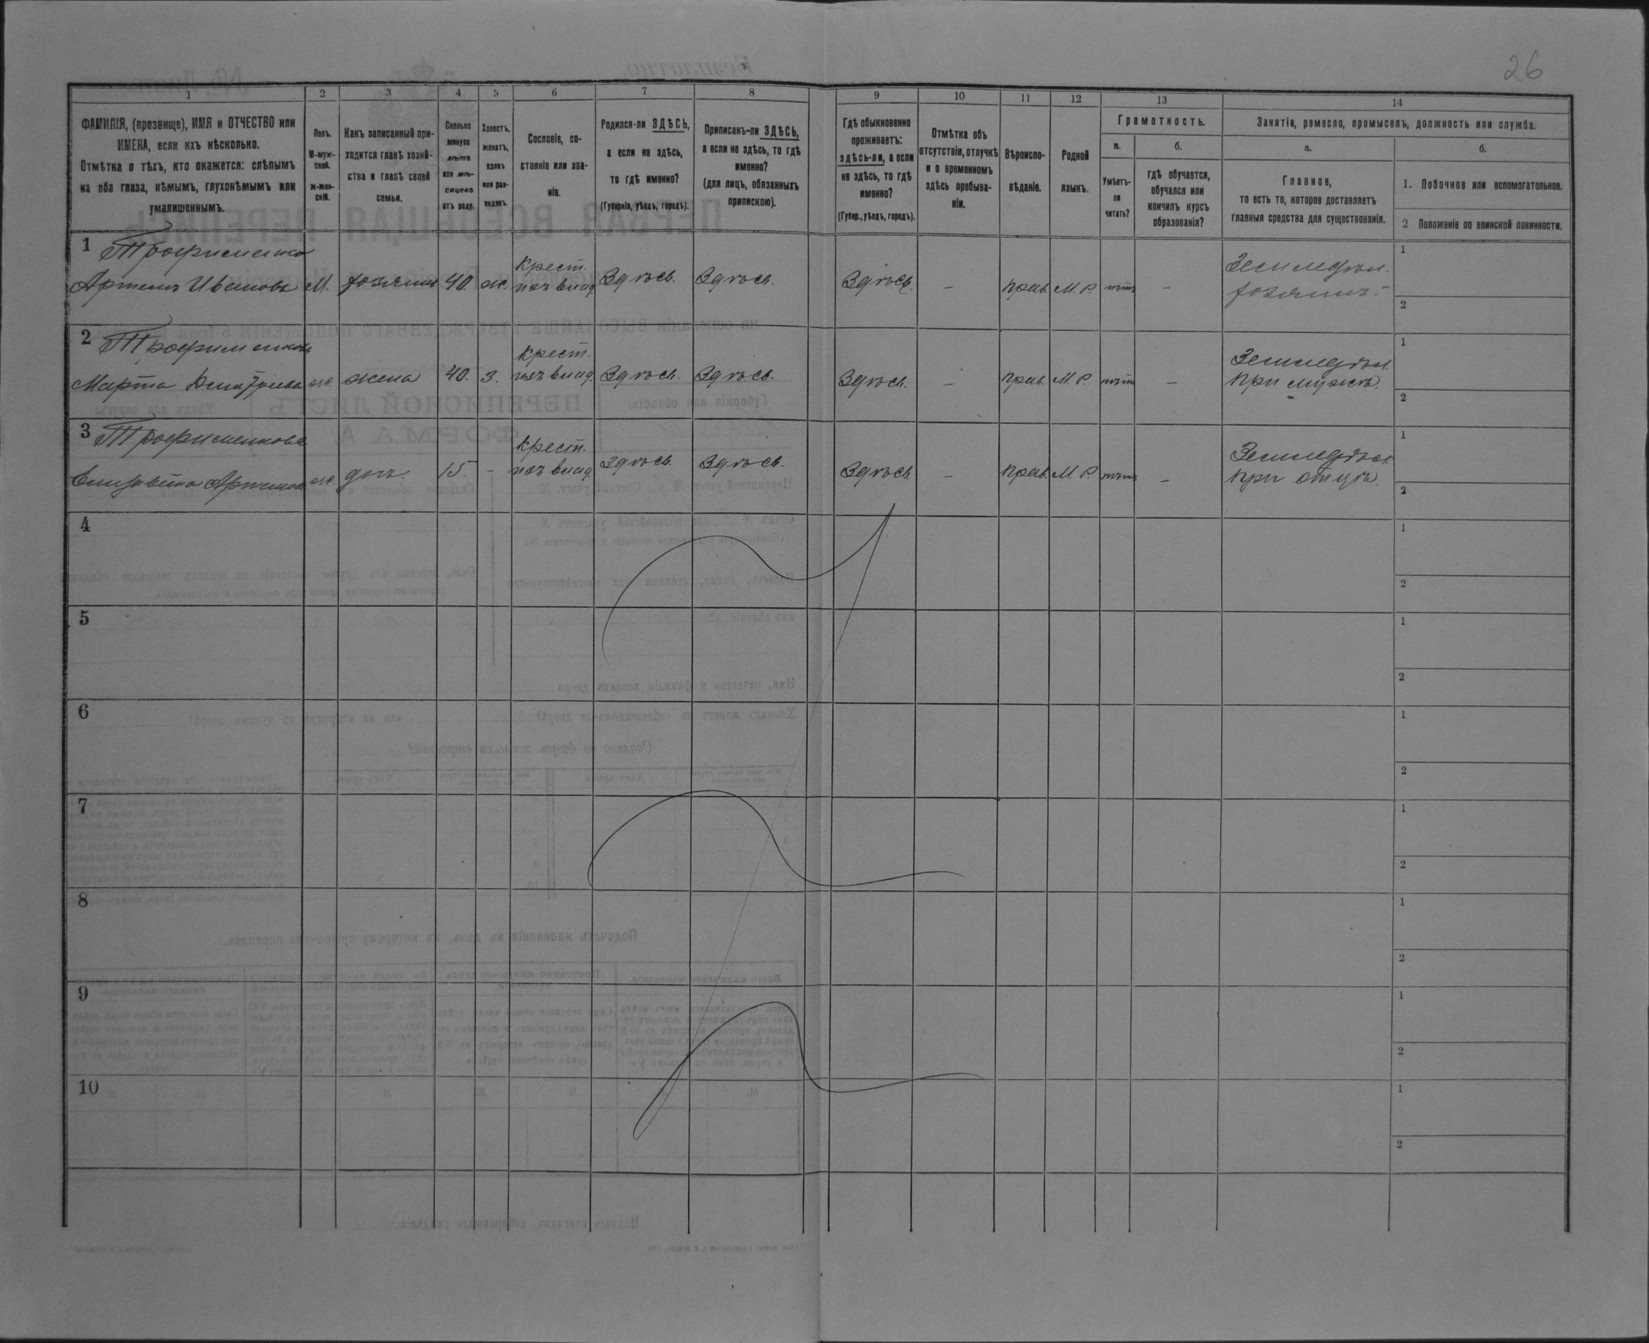 26
1 2 3 4 5 6 7 8 9 10 11 12 13 14
ФАМИЛІЯ, (прозвище), ИМЯ и ОТЧЕСТВО или
ИМЕНА, если ихъ нѣсколько.
Отмѣтка о тѣхъ, кто окажется: слѣпымъ
на оба глаза, нѣмымъ, глухонѣмымъ или
умалишеннымъ.
Полъ.
М-муж-
ской.
ж-жен-
скій.
Какъ записанный при-
ходится главѣ хозяй-
ства и главѣ своей
семьи.
Сколько
минуло
лѣтъ
или мѣ-
сяцевъ
отъ роду.
Холостъ,
женатъ,
вдовъ
или раз-
веденъ.
Сословіе, со-
стояніе или зва-
ніе.
Родился-ли ЗДѢСЬ,
а если не здѣсь,
то гдѣ именно?
(Губернія, уѣздъ, городъ).
Приписанъ-ли ЗДѢСЬ,
а если не здѣсь, то гдѣ
именно?
(для лицъ, обязанныхъ
припискою).
Гдѣ обыкновенно
проживаетъ:
здѣсь-ли, а если
не здѣсь, то гдѣ
именно?
(Губер., уѣздъ, городъ).
Отмѣтка объ
отсутствіи, отлучкѣ
и о временномъ
здѣсь пребыва-
ніи.
Вѣроиспо-
вѣданіе.
Родной
языкъ.
Грамотность.
а.
Умѣетъ-
ли
читать?
б.
гдѣ обучается,
обучался или
кончилъ курсъ
образованія?
Занятіе, ремесло, промыселъ, должность или служба.
а.
Главное,
то есть то, которое доставляетъ
главныя средства для существованія.
б.
1. Побочное или вспомогательное.
2 Положеніе по воинской повинности.
1 Трофименко крест. Земледѣл. 1
Артемъ Ивановъ М. хозяинъ 40. ж. Здѣсь. Здѣсь. Здѣсь. – прав. М. Р. нѣтъ – хозяинъ. 2
2 Трофименкова крест. Земледѣл. 1
Марта ж. жена 40. З. Здѣсь. Здѣсь. Здѣсь. прав. М. Р. нѣтъ – при мужѣ. 2
3 Трофименкова крест. Земледѣл. 1
ж. дочь 15. – здѣсь. Здѣсь. Здѣсь – прав. М. Р. нѣтъ – при отцѣ. 2
4 1
2
5 1
2
6 1
2
7 1
2
8 1
2
9 1
2
10 1
2